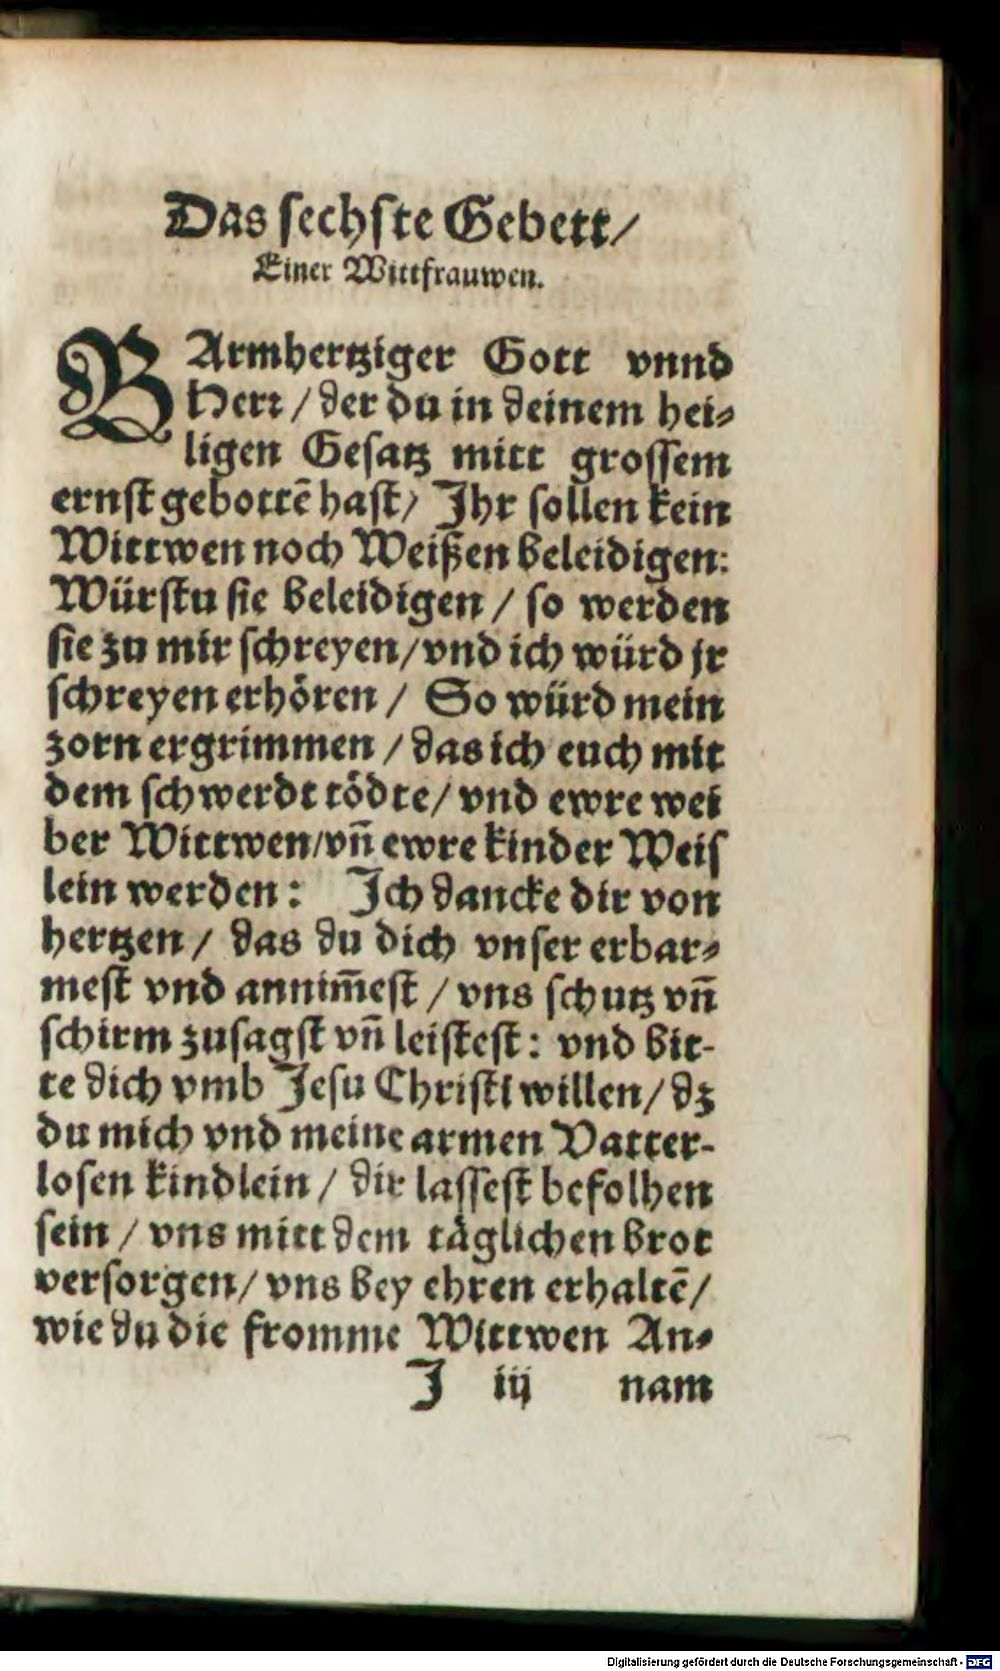 Das sechste Gebett/
Einer Wittfrauwen.
BArmhertziger Gott vnnd
Herr / der du in deinem hei⸗
ligen Gesatz mitt grossem
ernst gebottē hast/ Ihr sollen kein
Wittwen noch Weißen beleidigen:
Würstu sie beleidigen / so werden
sie zu mir schreyen/vnd ich würd jr
schreyen erhören / So würd mein
zorn ergrimmen / das ich euch mit
dem schwerdt tödte/ vnd ewre wei
ber Wittwen/vn̄ ewre kinder Weis
lein werden: Ich dancke dir von
hertzen / das du dich vnser erbar⸗
mest vnd annim̄est / vns schutz vn̄
schirm zusagst vn̄ leistest: vnd bit-
te dich vmb Jesu Christi willen/ dz
du mich vnd meine armen Vatter-
losen kindlein / dir lassest befolhen
sein / vns mitt dem täglichen brot
versorgen/ vns bey ehren erhaltē/
wie du die fromme Wittwen An⸗
J iij nam
Digitalisierung gefördert durch die Deutsche Forschungsgemeinschaft - DFG